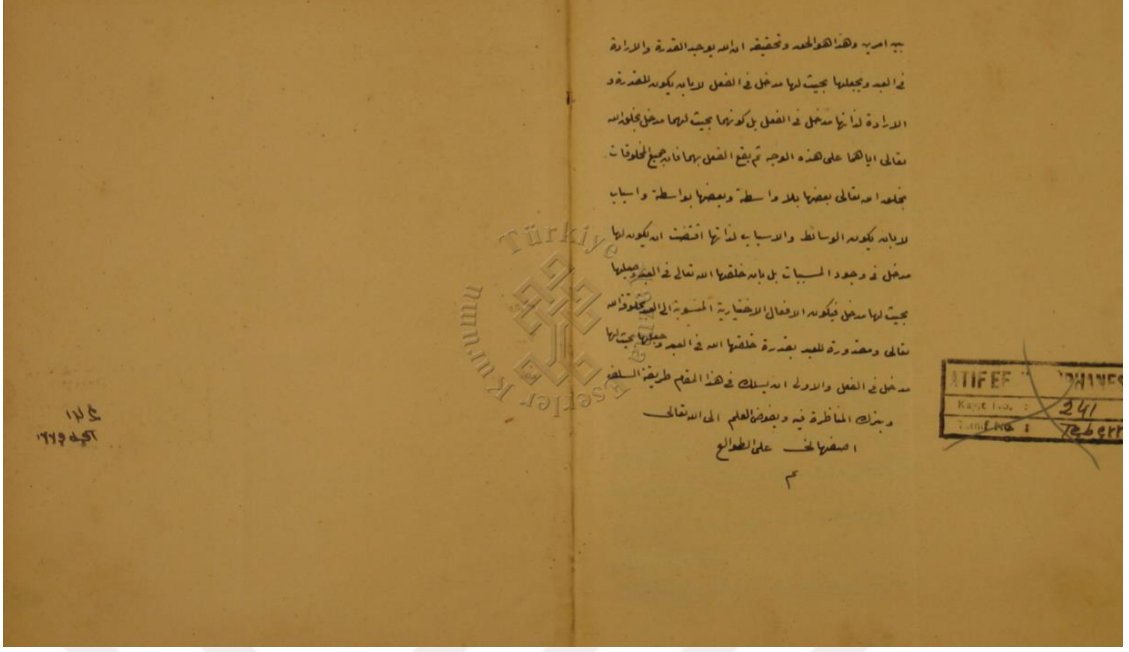 بين امرين وهذا هو الحق وتحقيقه ان الله يوجد القدرة والارادة
فى العبد ويجعلها بحيث لها مدخل فى الفعل لا بان يكون للقدرة و
الارادة لذاتها مدخل فى الفعل بل كونهما بحيث لهما مدخل بخلق الله
تعالى اياهما على هذه الوجه ثم يقع الفعل بهما فان جميع المخلوقات
بخلق الله تعالى بعضها بلا واسطة وبعضها بواسطة واسباب
لا بان يكون الوسائط والاسباب لذاتها اقتضت ان يكون لها
مدخل فى وجود المسببات بل بان خلقها الله تعالى فى العبد وجعلها
بحيث لها مدخل فيكون الافعال الاختيارية المنسوبة الى العبد مخلوقة الله
تعالى ومقدورة للعبد بقدرة خلقها الله فى العبد وجعلها بحيث لها
مدخل فى الفعل والاولى ان يسلك فى هذا المقام طريقة السلف
ويترك المناظرة فيه ويفوض العلم الى الله تعالى
اصفهانى على الطوالع
م
ATIF EF
Kayıt No. : 241
Tasnif No : Teberr
Türkiye
Yazma Eserler Kurumu